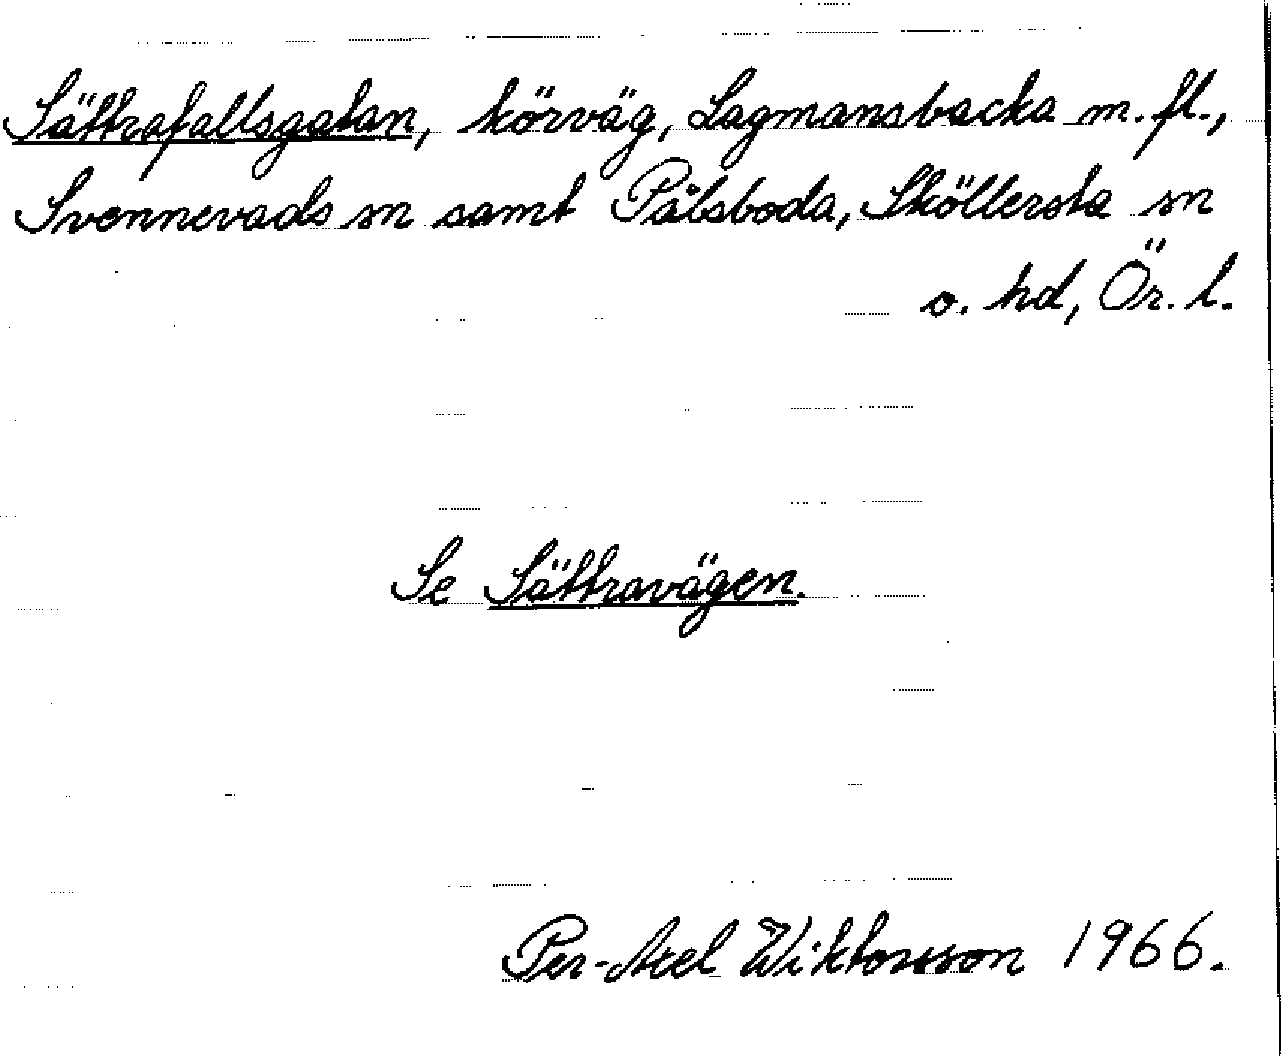 Sättrafallsgatan, körväg, Lagmansbacka m.fl.,
Svennevads sn samt Pålsboda, Sköllersta sn
o. hd, Ör. l.
Se Sättravägen.
Per-Axel Wiktorsson 1966.